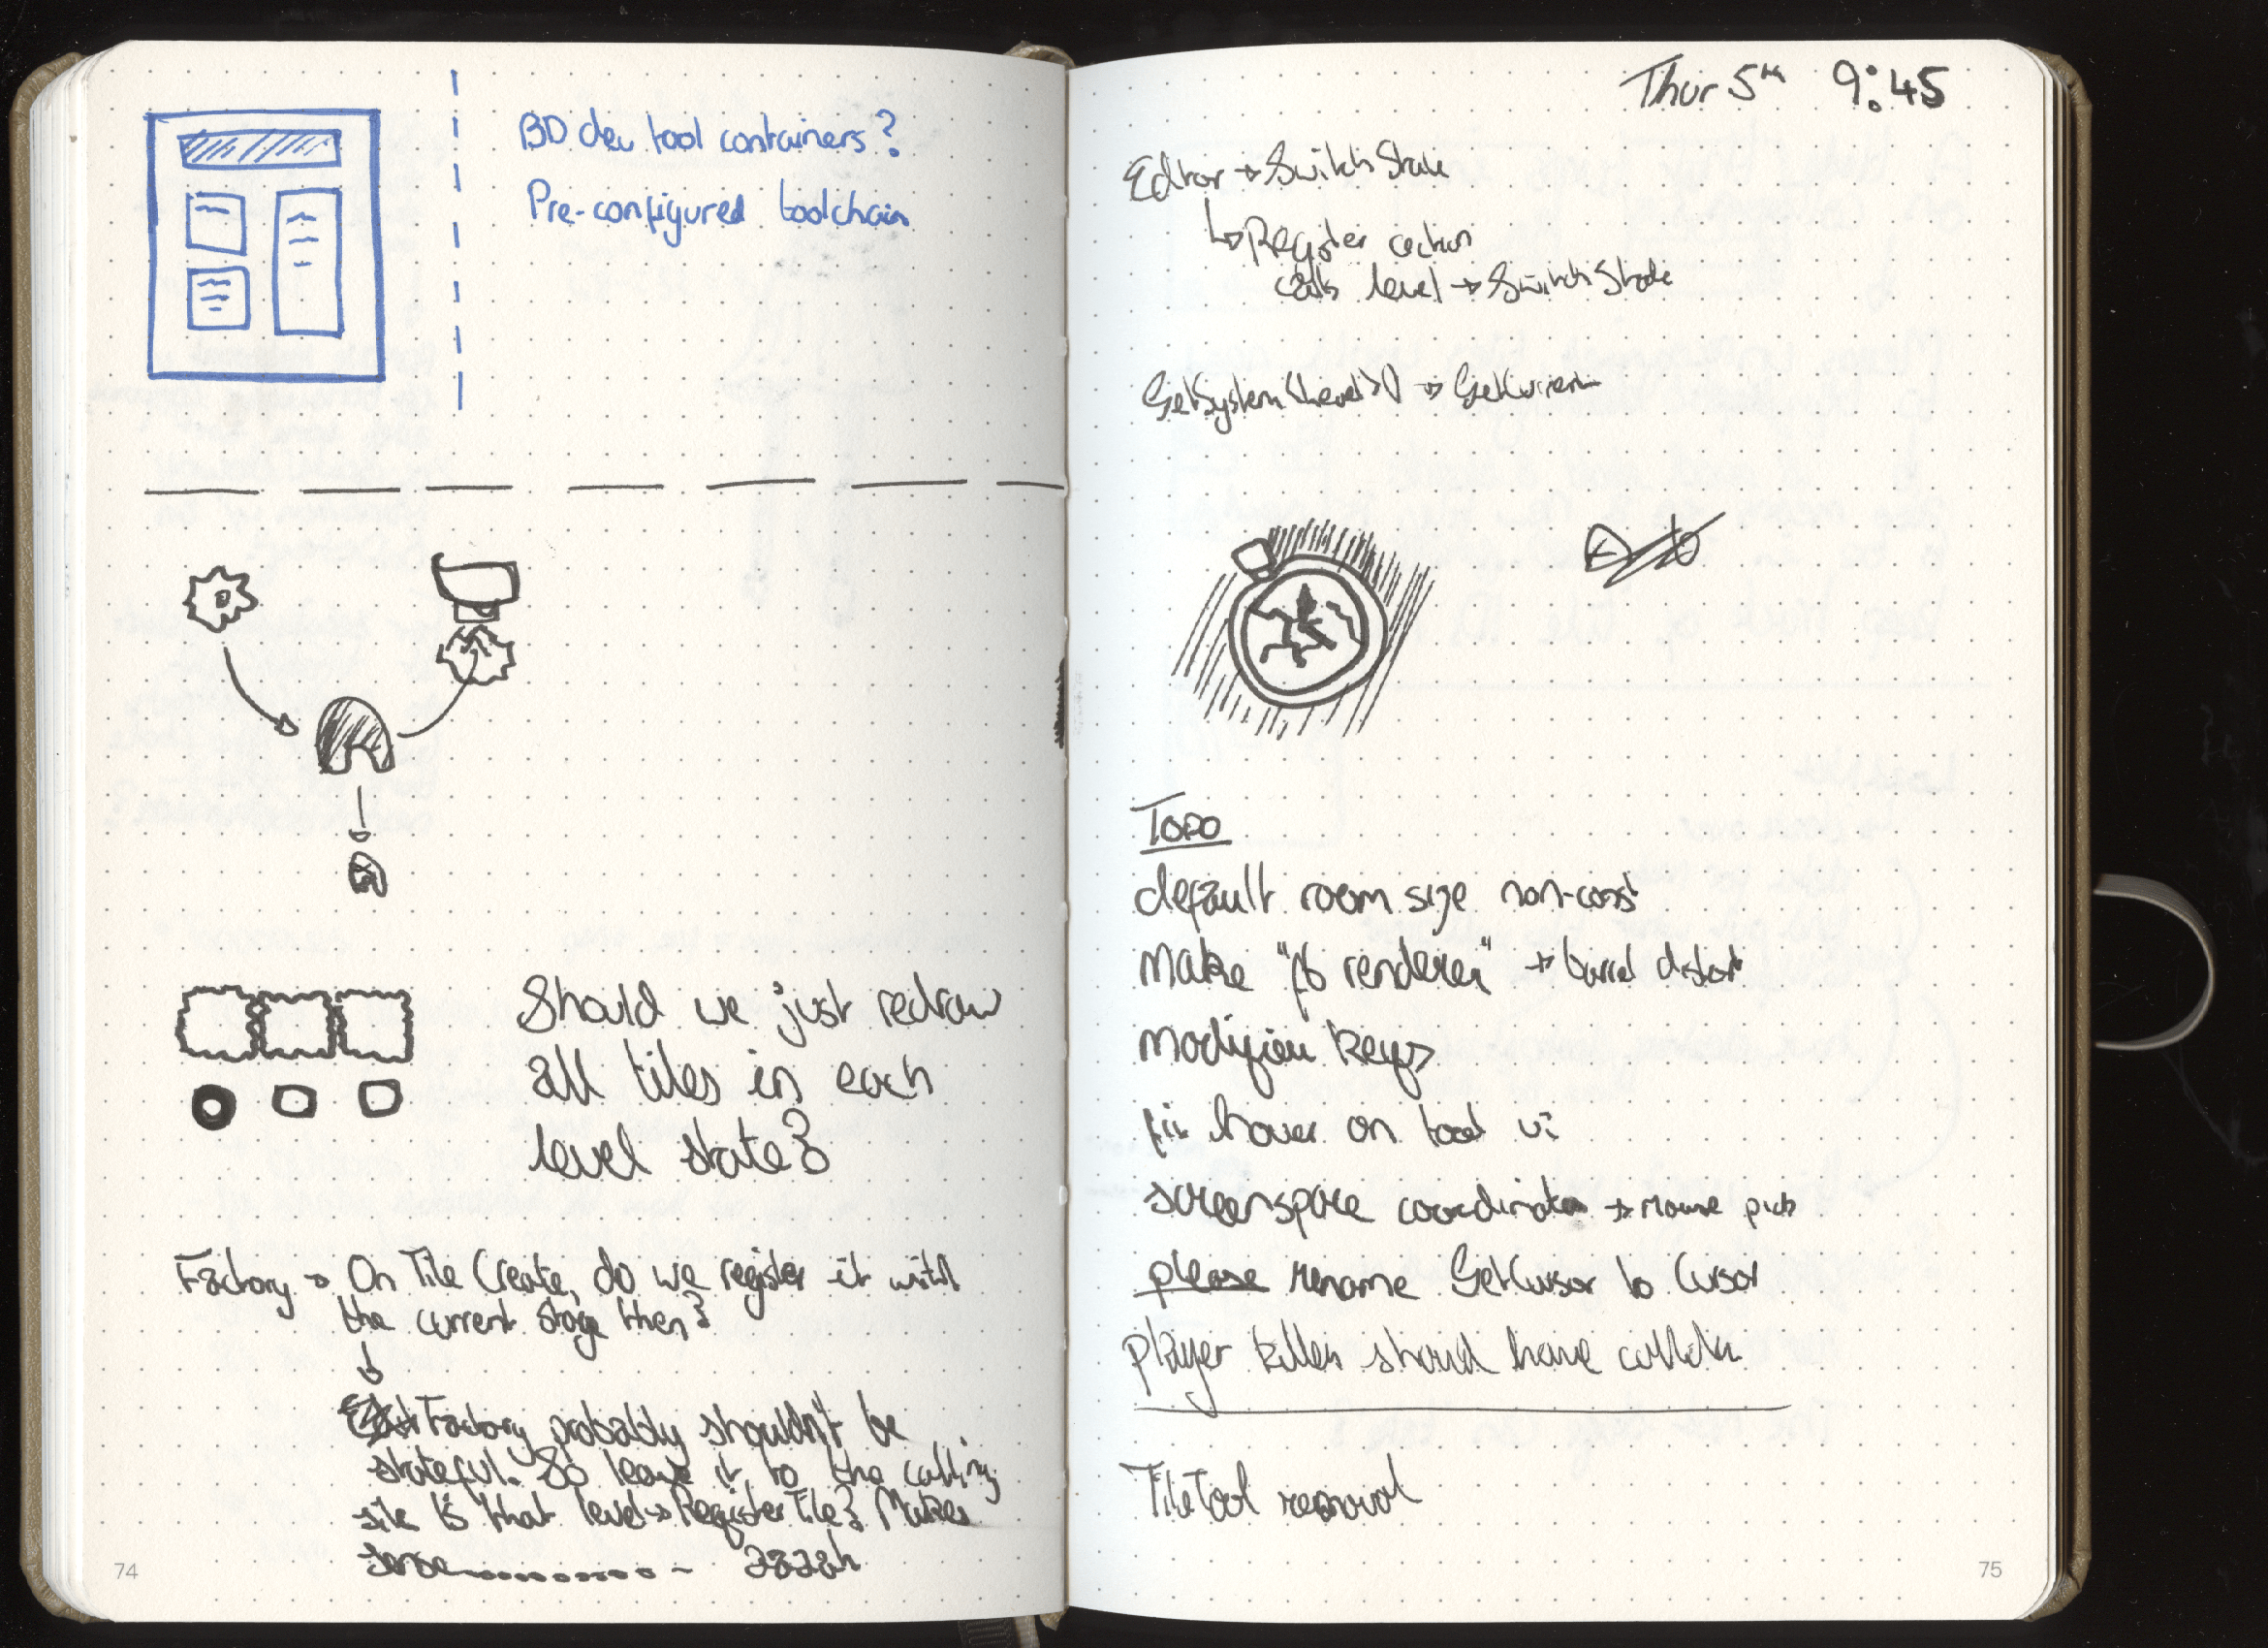 BD dev tool containers?
Pre-configured toolchain
Should we just redraw
all tiles in each
level state?
Factory → On Tile Create, do we register it with
the current stage then?
↓
Factory probably shouldn't be
stateful. So leave it to the calling
site is that level→RegisterTile? Makes
sense.......... - aaaah
74
Thur 5th 9:45
Editor → SwitchState
↳ Register action
calls level → SwitchState
GetSystem<Level>() → GetCurrent
TODO
default room size non-const
make "fb renderer" → barrel distort
modifier keys
fix hover on tool ui
screenspace coordinates → mouse pick
please rename GetCursor to Cursor
player killer should have
TileTool removal
75